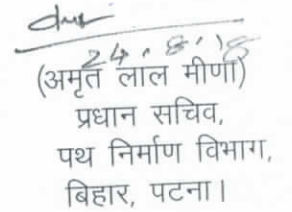 24.8.18
(अमृत लाल मीणा)
प्रधान सचिव,
पथ निर्माण विभाग,
बिहार, पटना।